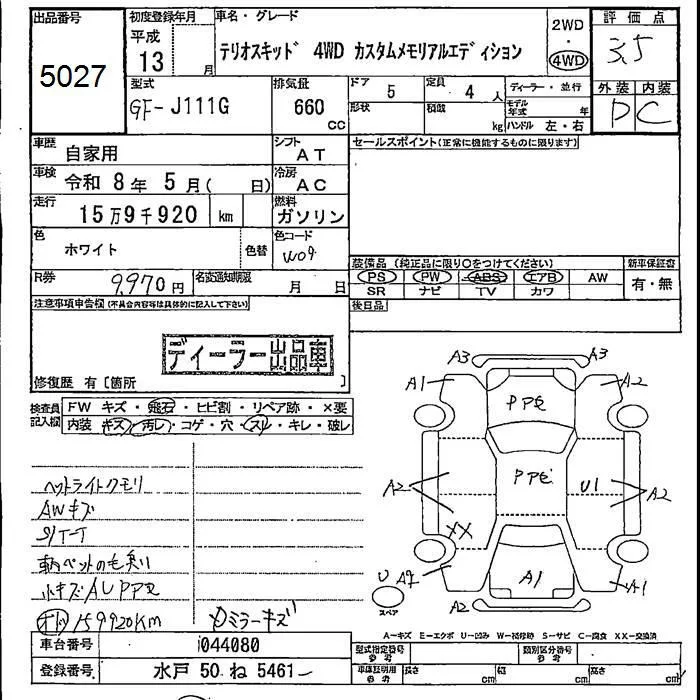 出品番号 初度登録年月 車名・グレード 評価点
5027 平成 13 月 テリオスキッド 4WD カスタムメモリアルエディション 2WD ・ 4WD 3.5
型式 排気量 ドア 5 定員 4 人 ディーラー・並行 外装 内装
GF-J111G 660 CC 形状 積載 kg モデル年式 年 ハンドル 左・右 D C
車歴 自家用 シフト AT セールスポイント(正常に機能するものに限ります)
車検 令和 8 年 5 月( 日) 冷房 AC
走行 15万9千920 km 燃料 ガソリン
色 ホワイト 色替 色コード W09
装備品 (純正品に限り○をつけてください) 新車保証書
R券 9,970円 名変通知期限 月 日 PS PW ABS エアB AW 有・無
SR ナビ TV カワ
注意事項申告欄(不具合内容等は具体的に記入して下さい) 後日品
ディーラー出品車
修復歴 有〔箇所 〕
検査員記入欄 FW キズ・飛石・ヒビ割・リペア跡・×要
内装 キズ・汚レ・コゲ・穴・スレ・キレ・破レ
A3 A3
A1 A2
PPE
PPE
A2 U1 A2
XX
U A2 A1 A1
スペア A2
ヘットライトクモリ
AWキズ
シートT
柄ペットの毛臭り
小キズAUPPE
オド 159920KM
ドミラーキズ
A-キズ E-エクボ U-凹み W-補修跡 S-サビ C-腐食 XX-交換済
車台番号 J044080 型式指定番号 参考 類別区分番号 参考
登録番号 水戸 50 ね 5461 車体証明用 参考 長さ cm 幅 cm 高さ cm